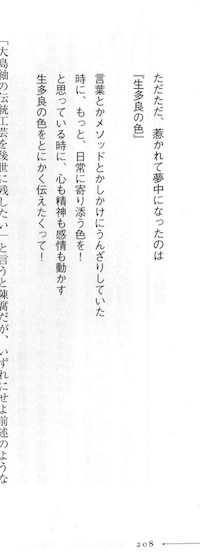 ただただ、惹かれて夢中になったのは
『生多良の色』
言葉とかメソッドとかしかけにうんざりしていた
時に、もっと、日常に寄り添う色を！
と思っている時に、心も精神も感情も動かす
生多良の色をとにかく伝えたくって！
「大島紬の伝統工芸を後世に残したい」と言うと陳腐だが、いずれにせよ前述のような
208